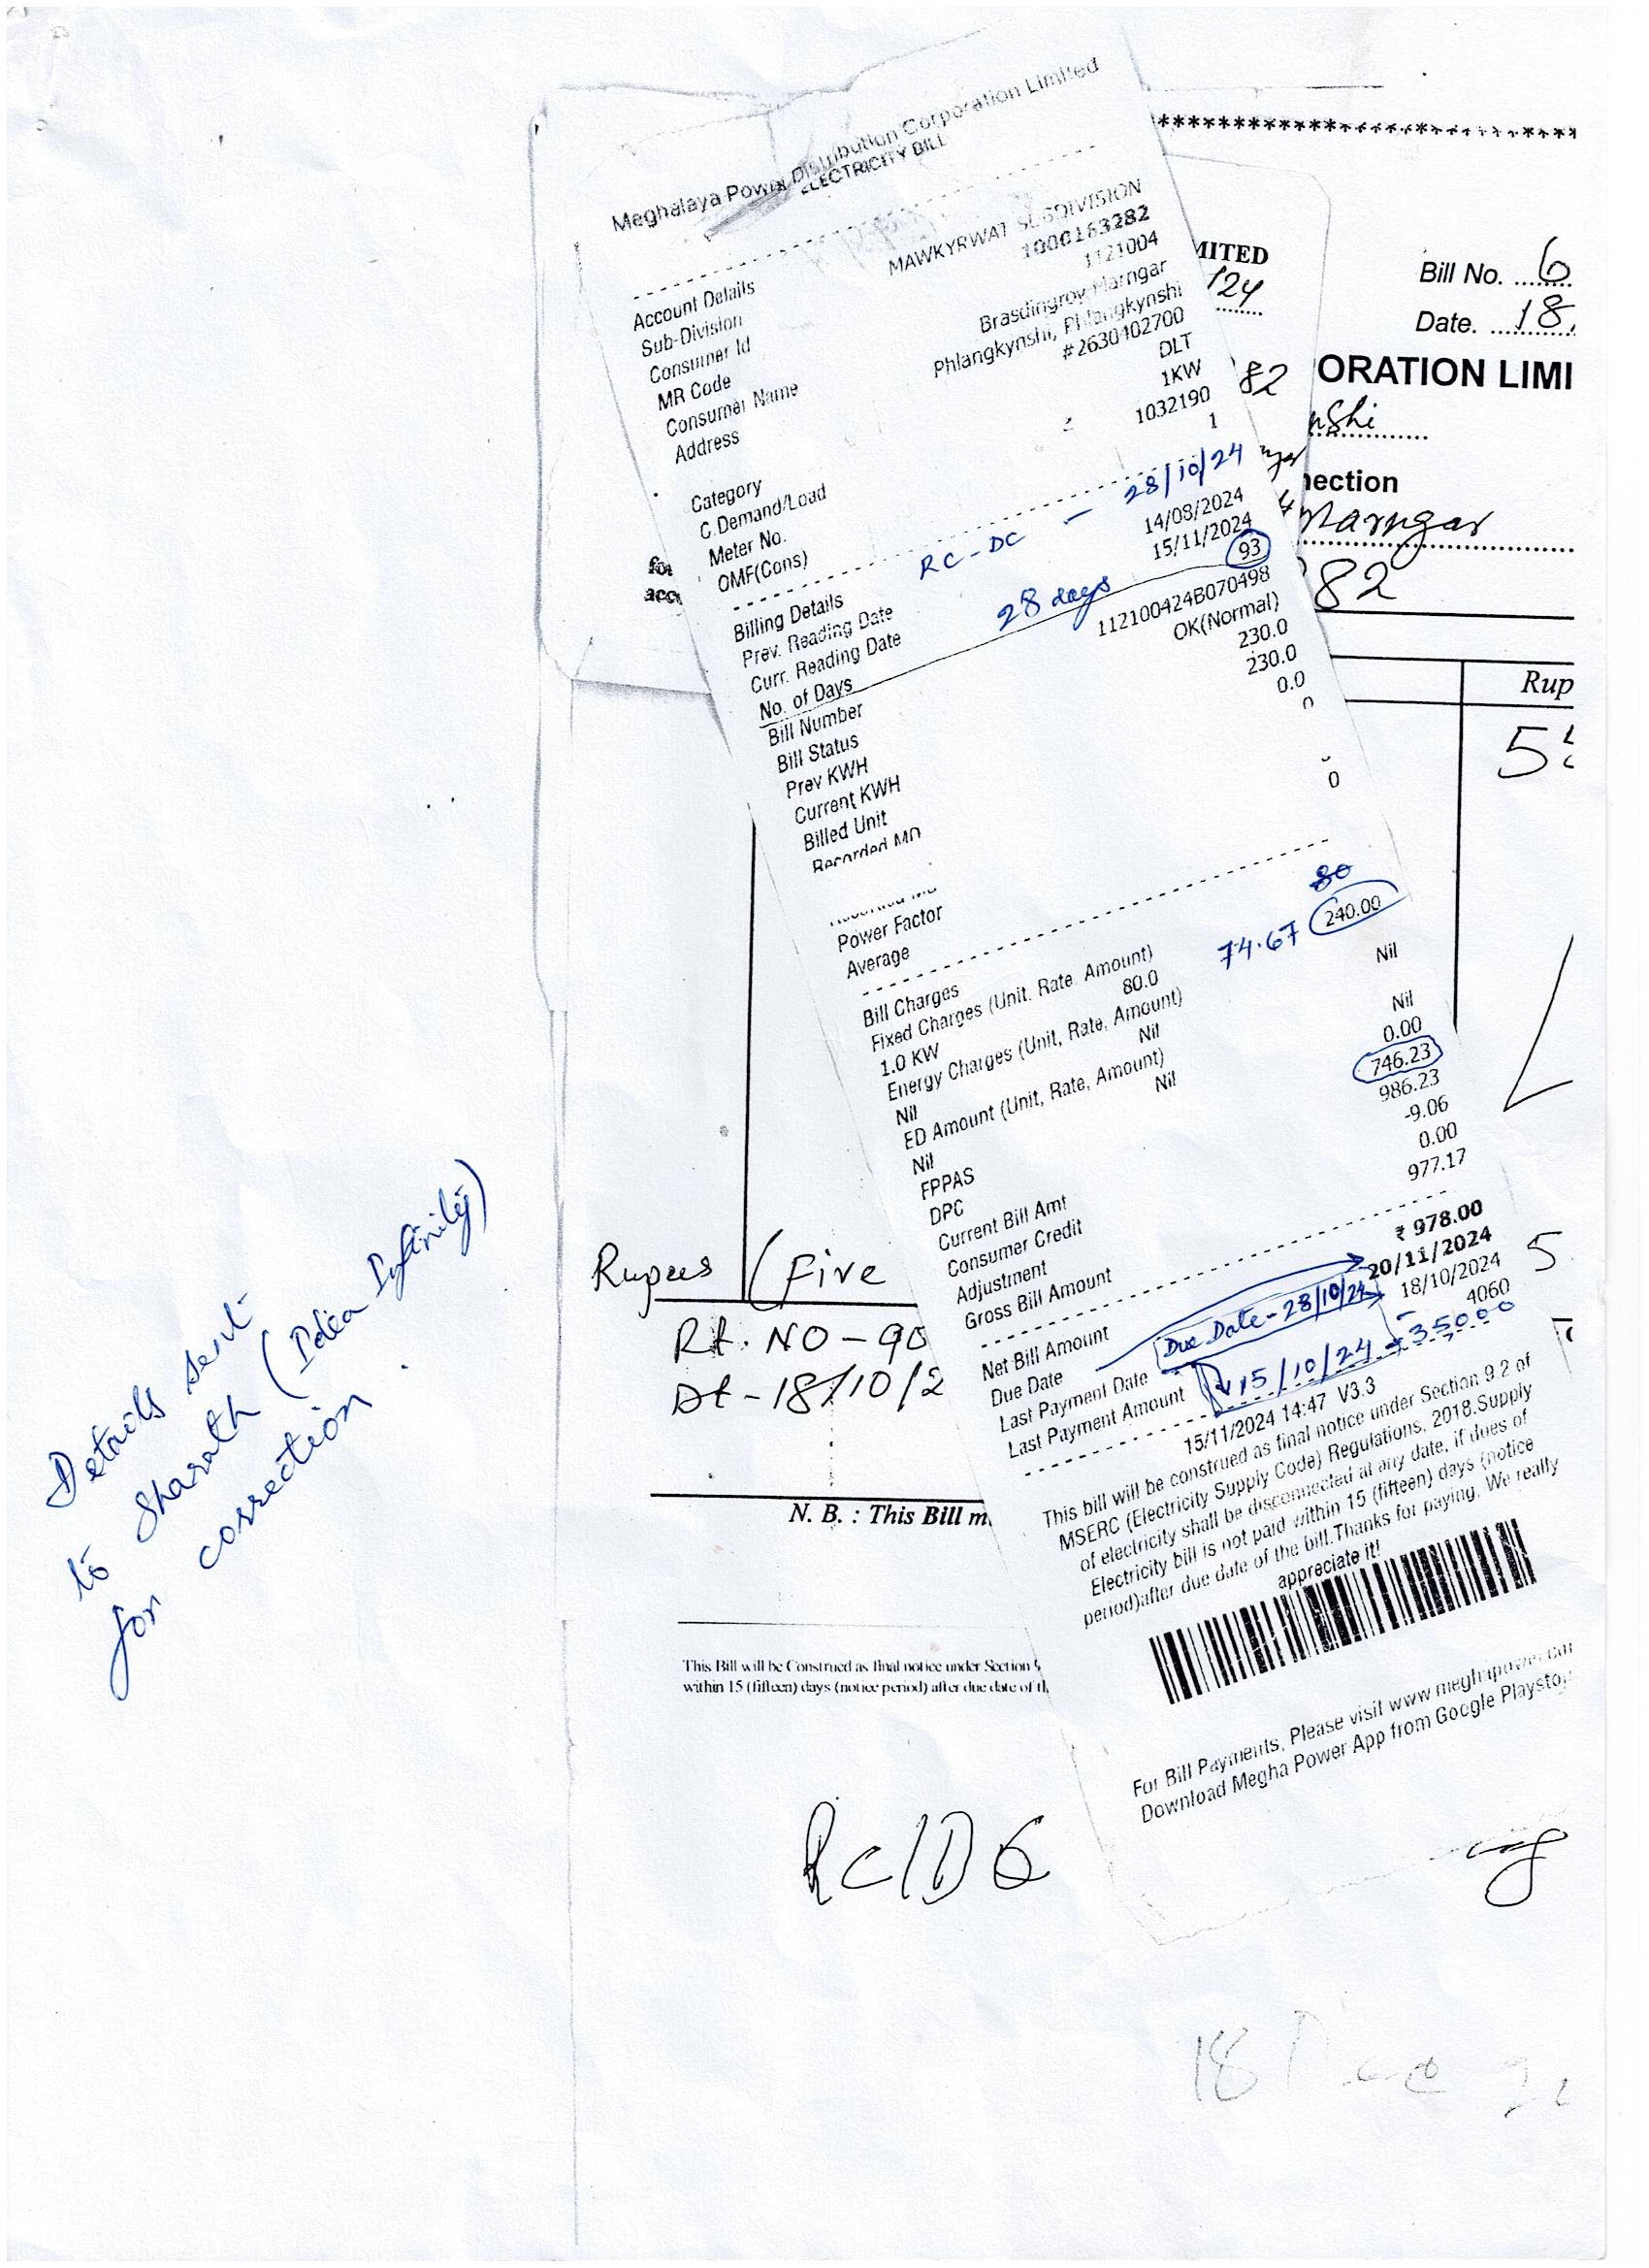 Meghalaya Power Distribution Corporation Limited
ELECTRICITY BILL
Account Details
Sub-Division MAWKYRWAT SUBDIVISION
Consumer Id 1000163282
MR Code 1121004
Consumer Name Brasdingroy Marngar
Address Phlangkynshi, Phlangkynshi
#2630402700
Category DLT
C.Demand/Load 1KW
Meter No. 1032190
OMF(Cons) 1
RC-DC - 28/10/24
Billing Details
Prev. Reading Date 14/08/2024
Curr. Reading Date 15/11/2024
No. of Days 28 days 93
Bill Number 112100424B070498
Bill Status OK(Normal)
Prev KWH 230.0
Current KWH 230.0
Billed Unit 0.0
Recorded MD 0
Power Factor
Average 0
Bill Charges 80
Fixed Charges (Unit. Rate. Amount) 74.67 240.00
1.0 KW 80.0
Energy Charges (Unit, Rate, Amount)
Nil Nil Nil
ED Amount (Unit, Rate, Amount)
Nil Nil Nil
FPPAS 0.00
DPC 746.23
Current Bill Amt 986.23
Consumer Credit -9.06
Adjustment 0.00
Gross Bill Amount 977.17
Net Bill Amount ₹ 978.00
Due Date 20/11/2024
Due Date - 28/10/24
Last Payment Date 18/10/2024
Last Payment Amount 4060
15/10/24 - 3500
15/11/2024 14:47 V3.3
This bill will be construed as final notice under Section 9.2 of
MSERC (Electricity Supply Code) Regulations, 2018.Supply
of electricity shall be disconnected at any date, if dues of
Electricity bill is not paid within 15 (fifteen) days (notice
period)after due date of the bill.Thanks for paying. We really
appreciate it!
For Bill Payments, Please visit www.meghapower.com
Download Megha Power App from Google Playstop
********************************
MITED
/24
Bill No. ...6
Date. ...18.
ORATION LIMI
82
nshi
nection
Marngar
82
Rup
5
Rupees (Five
5
Rt. NO - 90
Dt - 18/10/2
N. B. : This Bill m
This Bill will be Construed as final notice under Section 9
within 15 (fifteen) days (notice period) after due date of th
RC/DC
18
Details sent
to Sharath (Idea Infinity)
for correction.